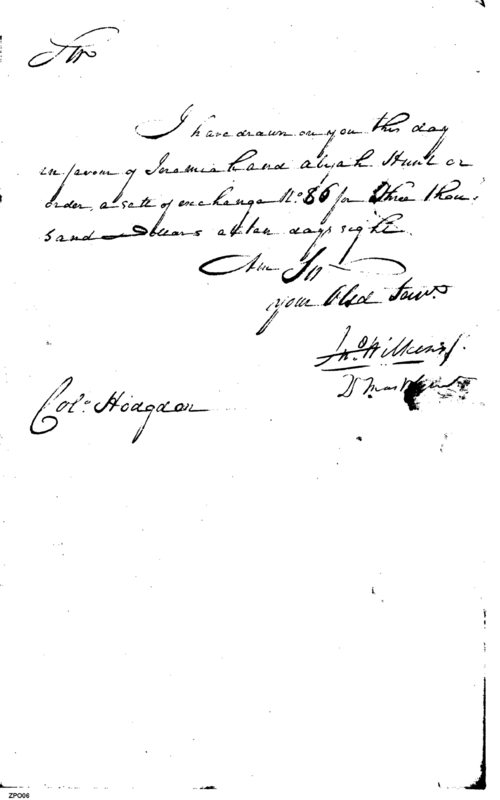 Sir
I have drawn on you this day
in favour of Jeremiah and abijah Hunt or
order, a sett of exchange No. 86 for three thou-
sand Dollars at ten days sight.
Am Sir
your Obed Serv.
Jno. Wilkins Jr.
Colo. Hodgdon
ZPO06